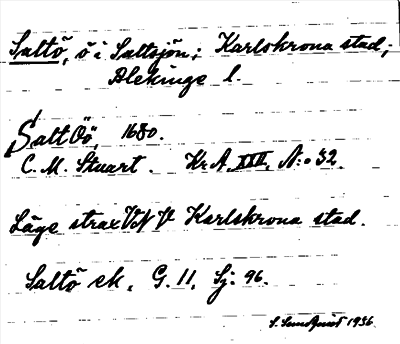 Saltö, ö i Saltsjön; Karlskrona stad;
Blekinge l.
SaltÖö, 1680.
C. M. Stuart. Kr. A. XIII, N:o 32.
Läge strax V N V Karlskrona stad.
Saltö ek, G. 11, Sj. 96.
S. Sundquist 1936.